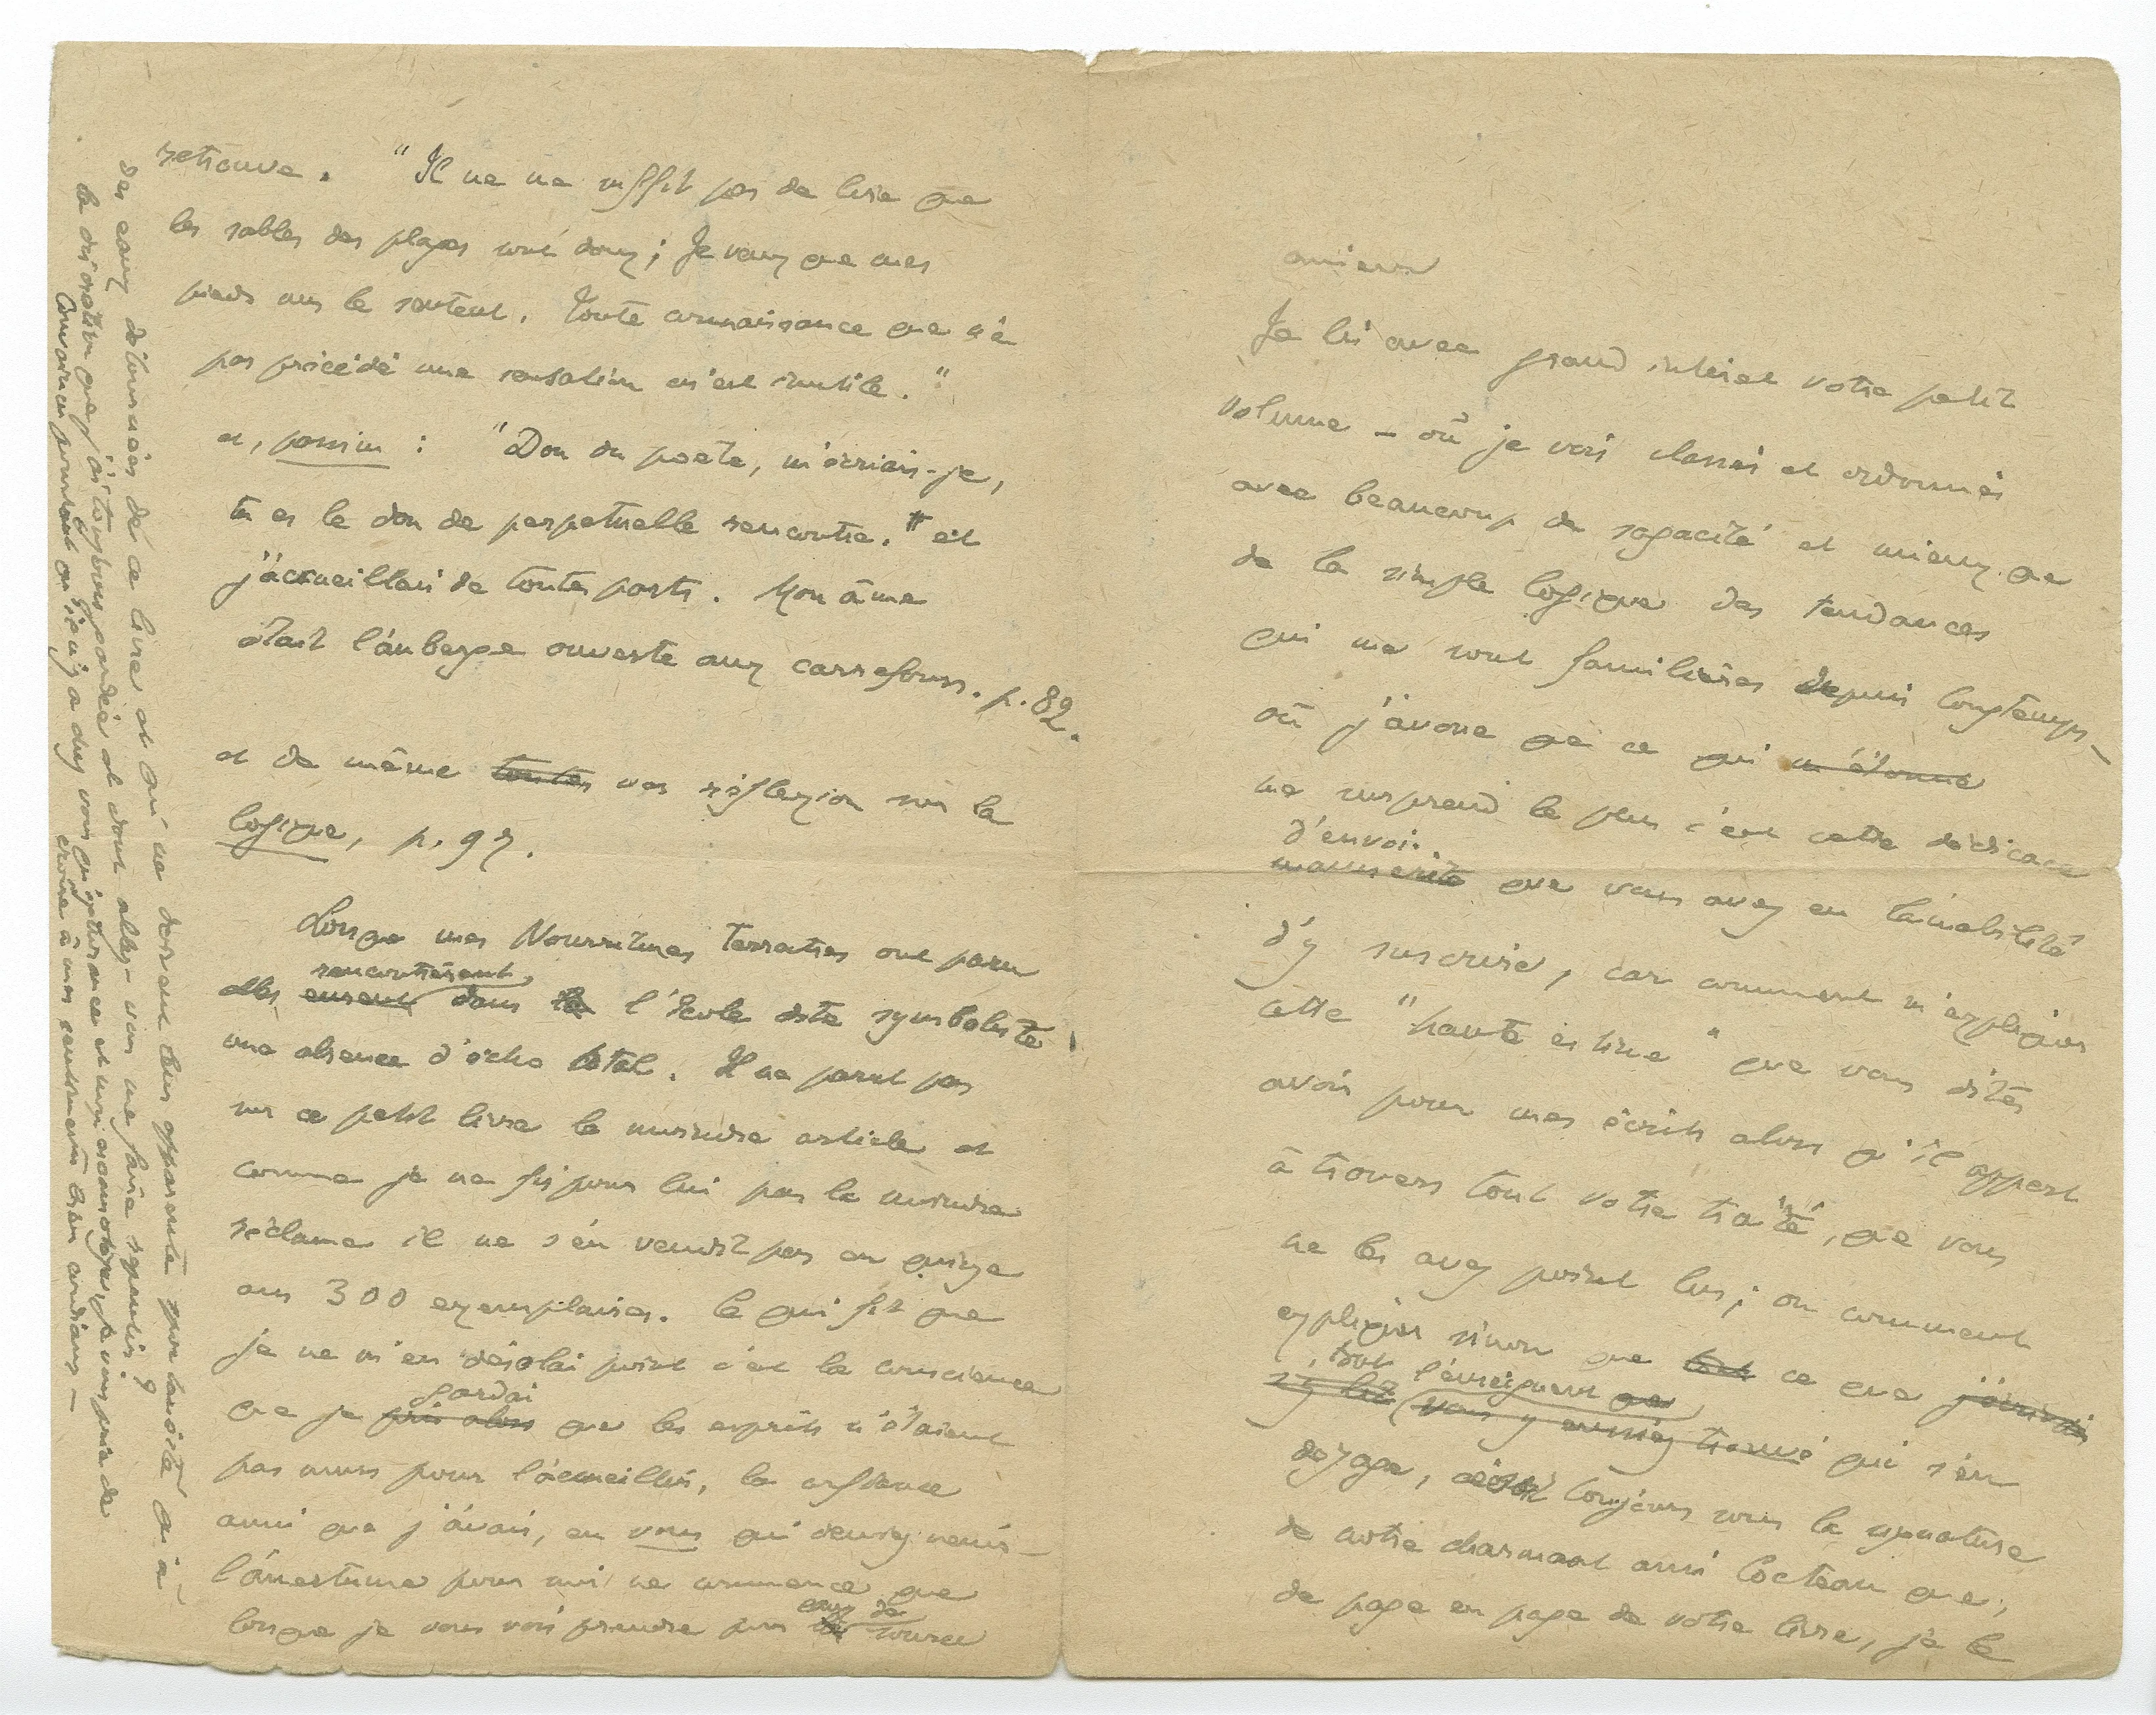 Je lis avec grand intérêt votre petit
volume – où je vois classés et ordonnés
avec beaucoup de sagacité et mieux que
de la simple logique des tendances
qui me sont familières depuis longtemps –
où j'avoue que ce qui m'étonne
me surprend le plus c'est cette dédicace
d'envoi
manuscrite que vous avez eu l'amabilité
d'y inscrire, car comment m'expliquer
cette "haute estime" que vous dites
avoir pour mes écrits alors qu'il appert
à travers tout votre traité, que vous
ne les avez point lus ; ou comment
expliquer sinon que tout ce que j'écrivais
, tout l'enseignement que
vous y eussiez trouvé qui s'en
dégage, toujours sous la signature
de notre charmant ami Cocteau que,
de page en page de votre livre, je le
retrouve. "Il ne me suffit pas de lire que
les sables des plages sont doux ; Je veux que mes
pieds nus le sentent. Toute connaissance que n'a
pas précédé une sensation m'est inutile."
et, passim : "Don du poète, m'écriais-je,
tu es le don de perpétuelle rencontre." et
j'accueillais de toutes parts. Mon âme
était l'auberge ouverte aux carrefours. p. 82.
et de même toutes vos réflexion sur la
logique, p. 97.
Lorsque mes Nourritures Terrestres ont paru
rencontrèrent
elles eurent dans la l'école dite symboliste
une absence d'écho total. Il ne parut pas
sur ce petit livre le moindre article et
comme je ne fis pour lui pas la moindre
réclame il ne s'en vendit pas en quinze
ans 300 exemplaires. Ce qui fit que
je ne m'en désolai point c'est la conscience
gardai
que je pris alors que les esprits n'étaient
pas murs pour l'accueillir, la confiance
aussi que j'avais, en vous qui deviez venir –
l'amertume pour moi ne commence que
eaux de
lorsque je vous vois prendre pour la source
des eaux détournées de ce livre et qui ne doivent leur apparente
la dérivation que j'ai toujours gardée et dont allez-vous me faire repentir ?
Convaincu pourtant qu'il n'y a chez vous qu'ignorance et je vous prie de
croire à mes sentiments bien cordiaux –